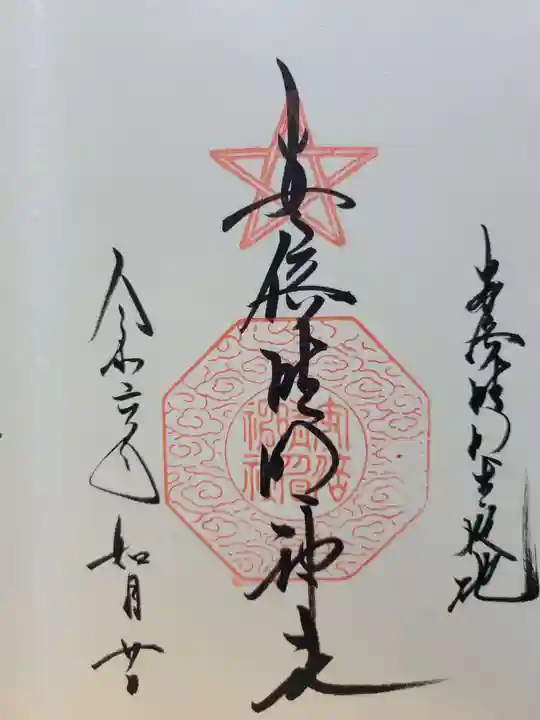 安倍晴明生誕地
安倍晴明神社
令和六年 如月 廿